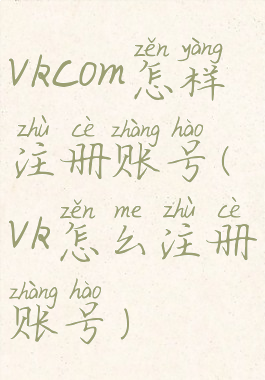 zěn yàng
vkcom怎样
zhù cè zhàng hào
注册账号(
zěn me zhù cè
vk怎么注册
zhàng hào
账号)